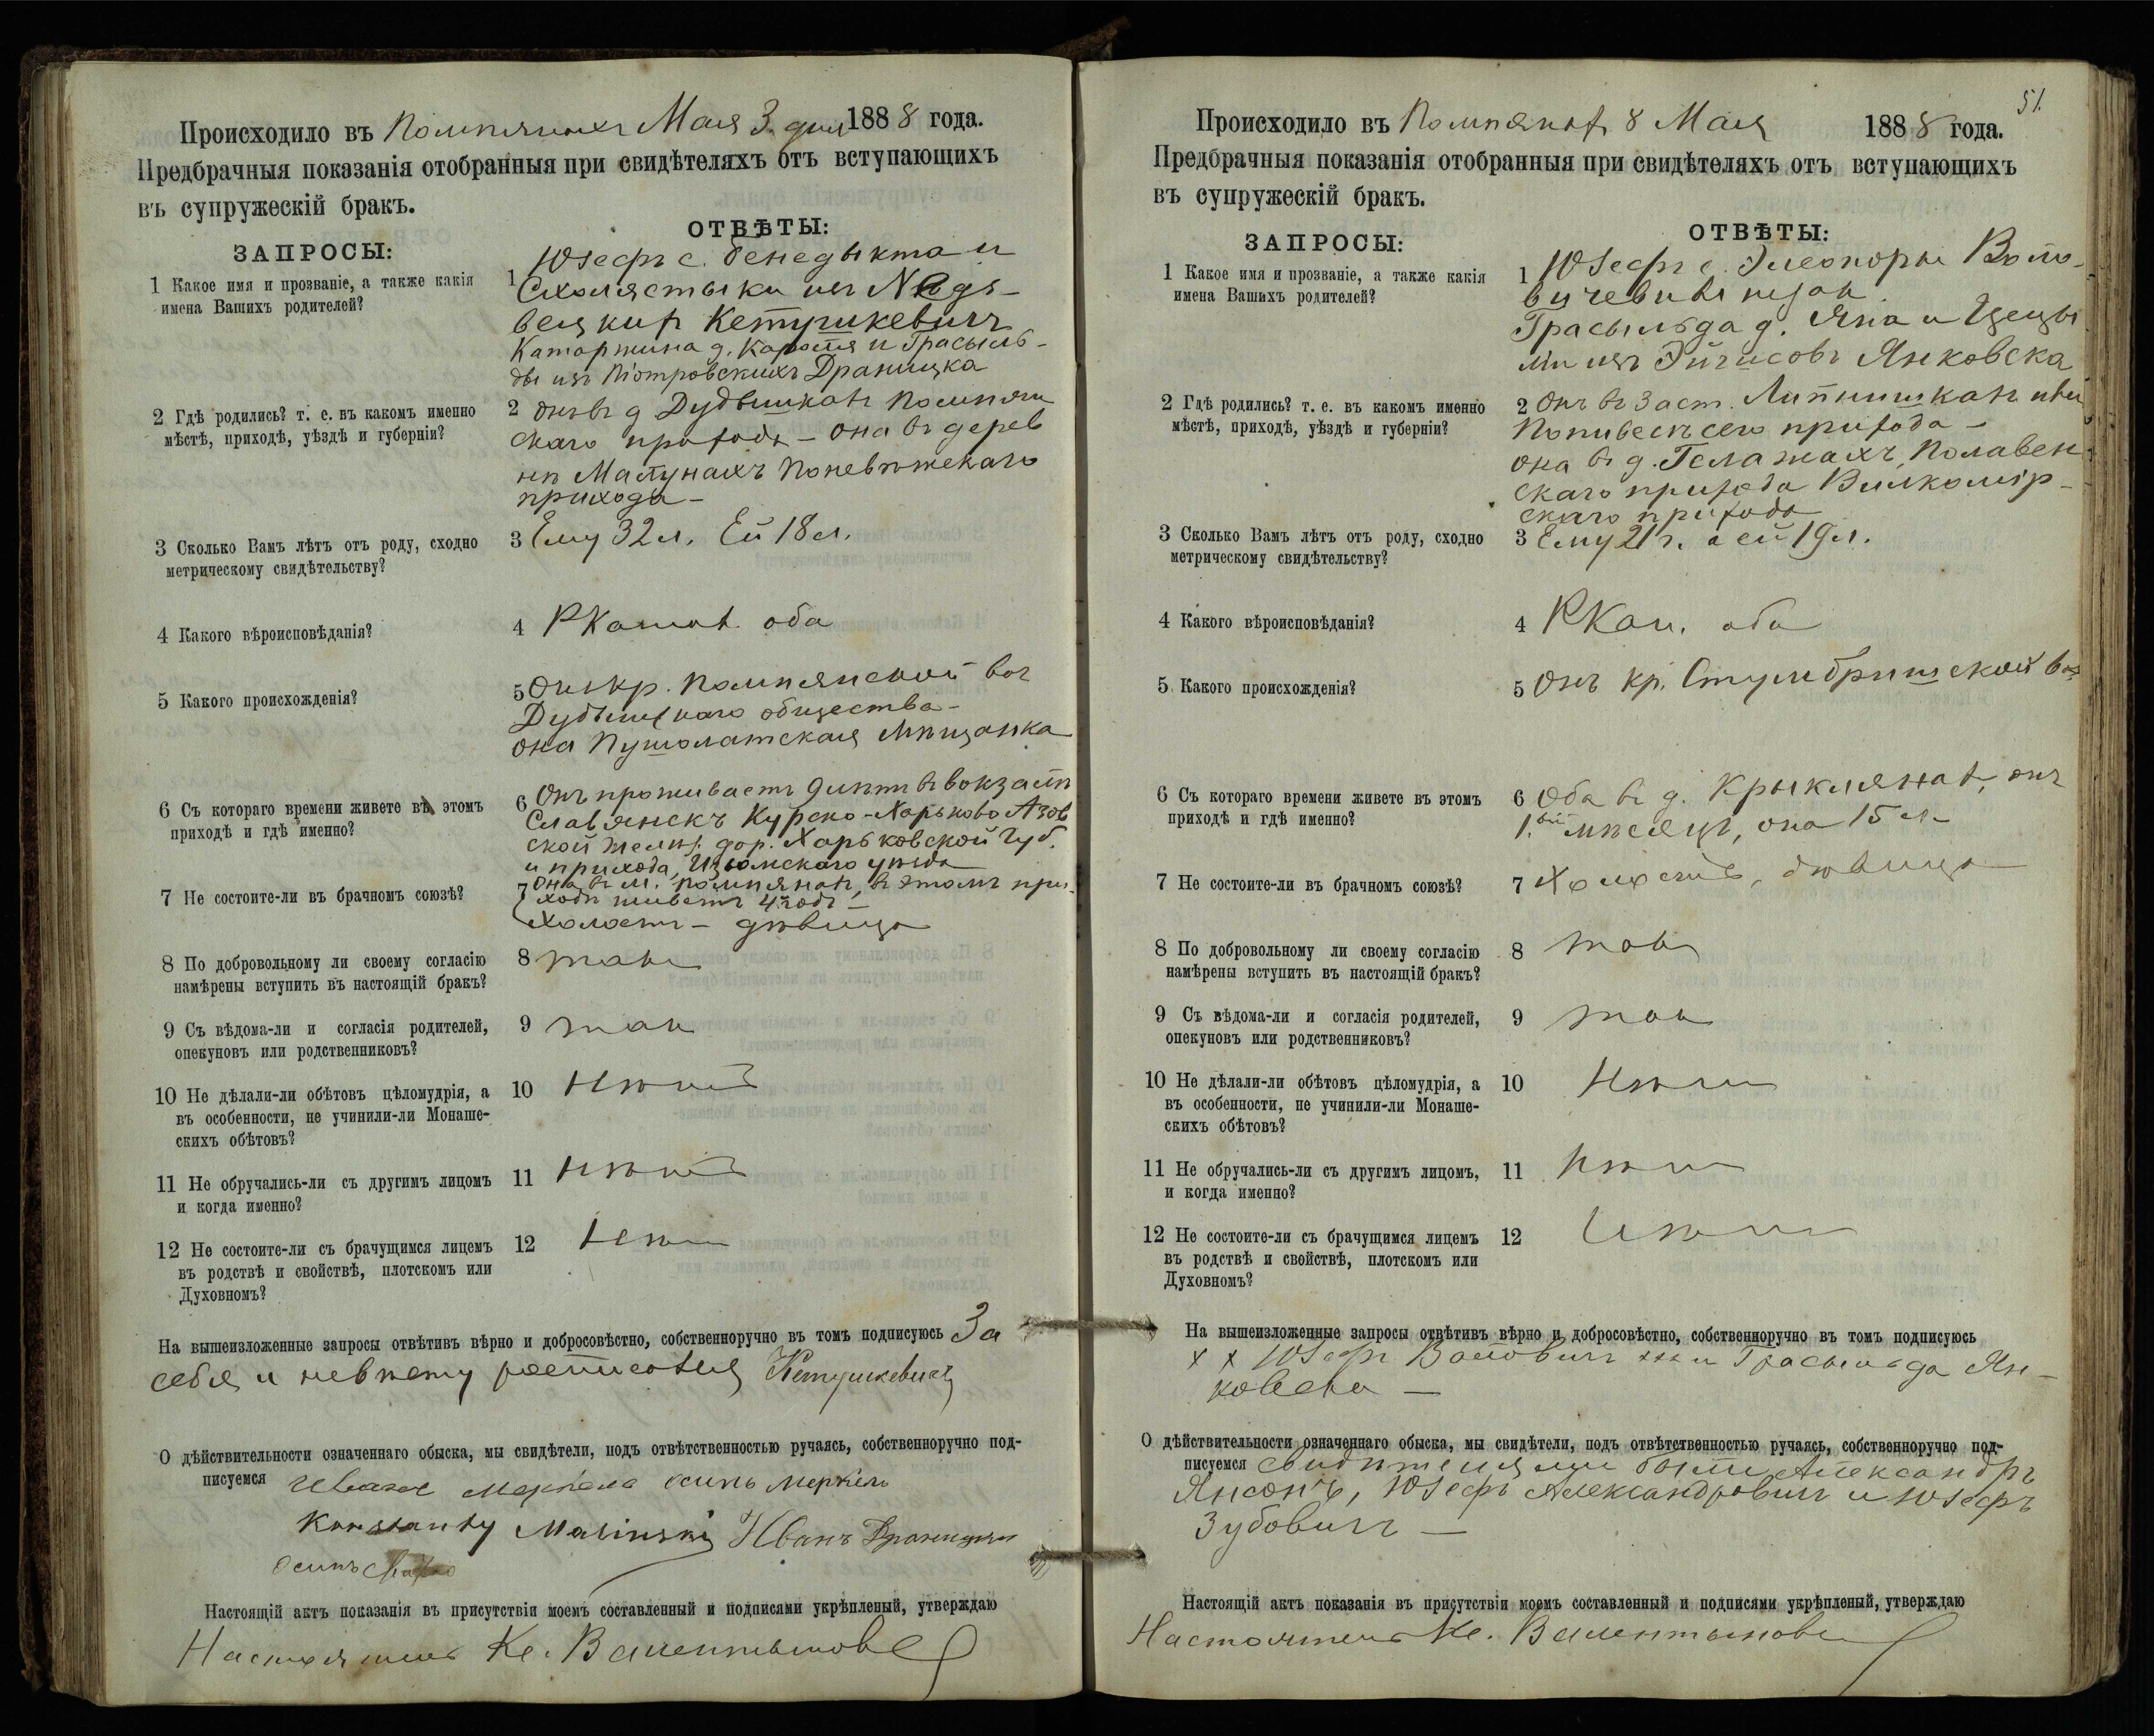 Происходило въ Помпянахъ Мая 3 дня 1888 года.
Предбрачныя показанія отобранныя при свидѣтеляхъ отъ вступающихъ
въ супружескій бракъ.
ЗАПРОСЫ:
ОТВѢТЫ:
1 Какое имя и прозваніе, а также какія
имена Вашихъ родителей?
1 Юзефъ с. Бенедыкта и
Схолястыки изъ
Кетушкевичъ
Катаржина д. Кароля и Грасыль-
ды изъ Піотровскихъ Драницка
2 Гдѣ родились? т. е. въ какомъ именно
мѣстѣ, приходѣ, уѣздѣ и губерніи?
2 Онъ въ д Дудышкахъ Помпян
скаго прихода - она въ дерев
нѣ Матунахъ Поневѣжскаго
прихода -
3 Сколько Вамъ лѣтъ отъ роду, сходно
метрическому свидѣтельству?
3 Ему 32 л. Ей 18 л.
4 Какого вѣроисповѣданія?
4 РКатол. оба
5 Какого происхожденія?
5 Онъ кр. Помпянской вол
общества -
она Пушолатская мѣщанка
6 Съ котораго времени живете въ этомъ
приходѣ и гдѣ именно?
6 Онъ проживаетъ 9 лѣтъ въ вокзалѣ
Славянскъ Курско-Харьково Азов
ской желѣз. дор. Харьковской Губ.
и прихода, Изюмскаго уѣзда
Она въ м. Помпянахъ, въ этомъ при-
ходѣ живетъ 4 годъ -
7 Не состоите-ли въ брачномъ союзѣ?
7 Холостъ - дѣвица
8 По добровольному ли своему согласію
намѣрены вступить въ настоящій бракъ?
8 такъ
9 Съ вѣдома-ли и согласія родителей,
опекуновъ или родственниковъ?
9 такъ
10 Не дѣлали-ли обѣтовъ цѣломудрія, а
въ особенности, не учинили-ли Монаше-
скихъ обѣтовъ?
10 Нѣтъ
11 Не обручались-ли съ другимъ лицомъ
и когда именно?
11 Нѣтъ
12 Не состоите-ли съ брачущимся лицемъ
въ родствѣ и свойствѣ, плотскомъ или
Духовномъ?
12 Нѣтъ
На вышеизложенные запросы отвѣтивъ вѣрно и добросовѣстно, собственноручно въ томъ подписуюсь За
себя и невѣсту росписался Кетушкевичъ
О дѣйствительности означеннаго обыска, мы свидѣтели, подъ отвѣтственностью ручаясь, собственноручно под-
писуемся
осипъ
Konstanty Malinski Иванъ
осипъ
Настоящій актъ показанія въ присутствіи моемъ составленный и подписями укрѣпленый, утверждаю
Настоятель Кс. Валентыновъ
51.
Происходило въ Помпянахъ 8 Мая 1888 года.
Предбрачныя показанія отобранныя при свидѣтеляхъ отъ вступающихъ
въ супружескій бракъ.
ЗАПРОСЫ:
ОТВѢТЫ:
1 Какое имя и прозваніе, а также какія
имена Вашихъ родителей?
1 Юзефъ с. Элеоноры
Грасыльда д. Яна и Цецы
ліи изъ Янковска
2 Гдѣ родились? т. е. въ какомъ именно
мѣстѣ, приходѣ, уѣздѣ и губерніи?
2 Онъ въ Заст. Липнишкахъ
сего прихода -
она въ д. Гелажахъ, Полавен
скаго прихода Вилкомір-
скаго прихода
3 Сколько Вамъ лѣтъ отъ роду, сходно
метрическому свидѣтельству?
3 Ему 21 г. а ей 19 л.
4 Какого вѣроисповѣданія?
4 РКат. оба
5 Какого происхожденія?
5 Онъ кр. Стумбришской вол
6 Съ котораго времени живете въ этомъ
приходѣ и гдѣ именно?
6 Оба въ д. Крыклянахъ, онъ
1.вый мѣсяцъ, она 15 л-
7 Не состоите-ли въ брачномъ союзѣ?
7 Холостъ, дѣвица
8 По добровольному ли своему согласію
намѣрены вступить въ настоящій бракъ?
8 такъ
9 Съ вѣдома-ли и согласія родителей,
опекуновъ или родственниковъ?
9 такъ
10 Не дѣлали-ли обѣтовъ цѣломудрія, а
въ особенности, не учинили-ли Монаше-
скихъ обѣтовъ?
10 Нѣтъ
11 Не обручались-ли съ другимъ лицомъ,
и когда именно?
11 Нѣтъ
12 Не состоите-ли съ брачущимся лицемъ
въ родствѣ и свойствѣ, плотскомъ или
Духовномъ?
12 Нѣтъ
На вышеизложенные запросы отвѣтивъ вѣрно и добросовѣстно, собственноручно въ томъ подписуюсь
х х Юзефъ ххх и Грасыльда Ян-
ковска -
О дѣйствительности означеннаго обыска, мы свидѣтели, подъ отвѣтственностью ручаясь, собственноручно под-
писуемся Свидѣтелями были Александръ
Янсонъ, Юзефъ Александровичъ и Юзефъ
Зубовичъ -
Настоящій актъ показанія въ присутствіи моемъ составленный и подписями укрѣпленый, утверждаю
Настоятель Кс. Валентыновъ